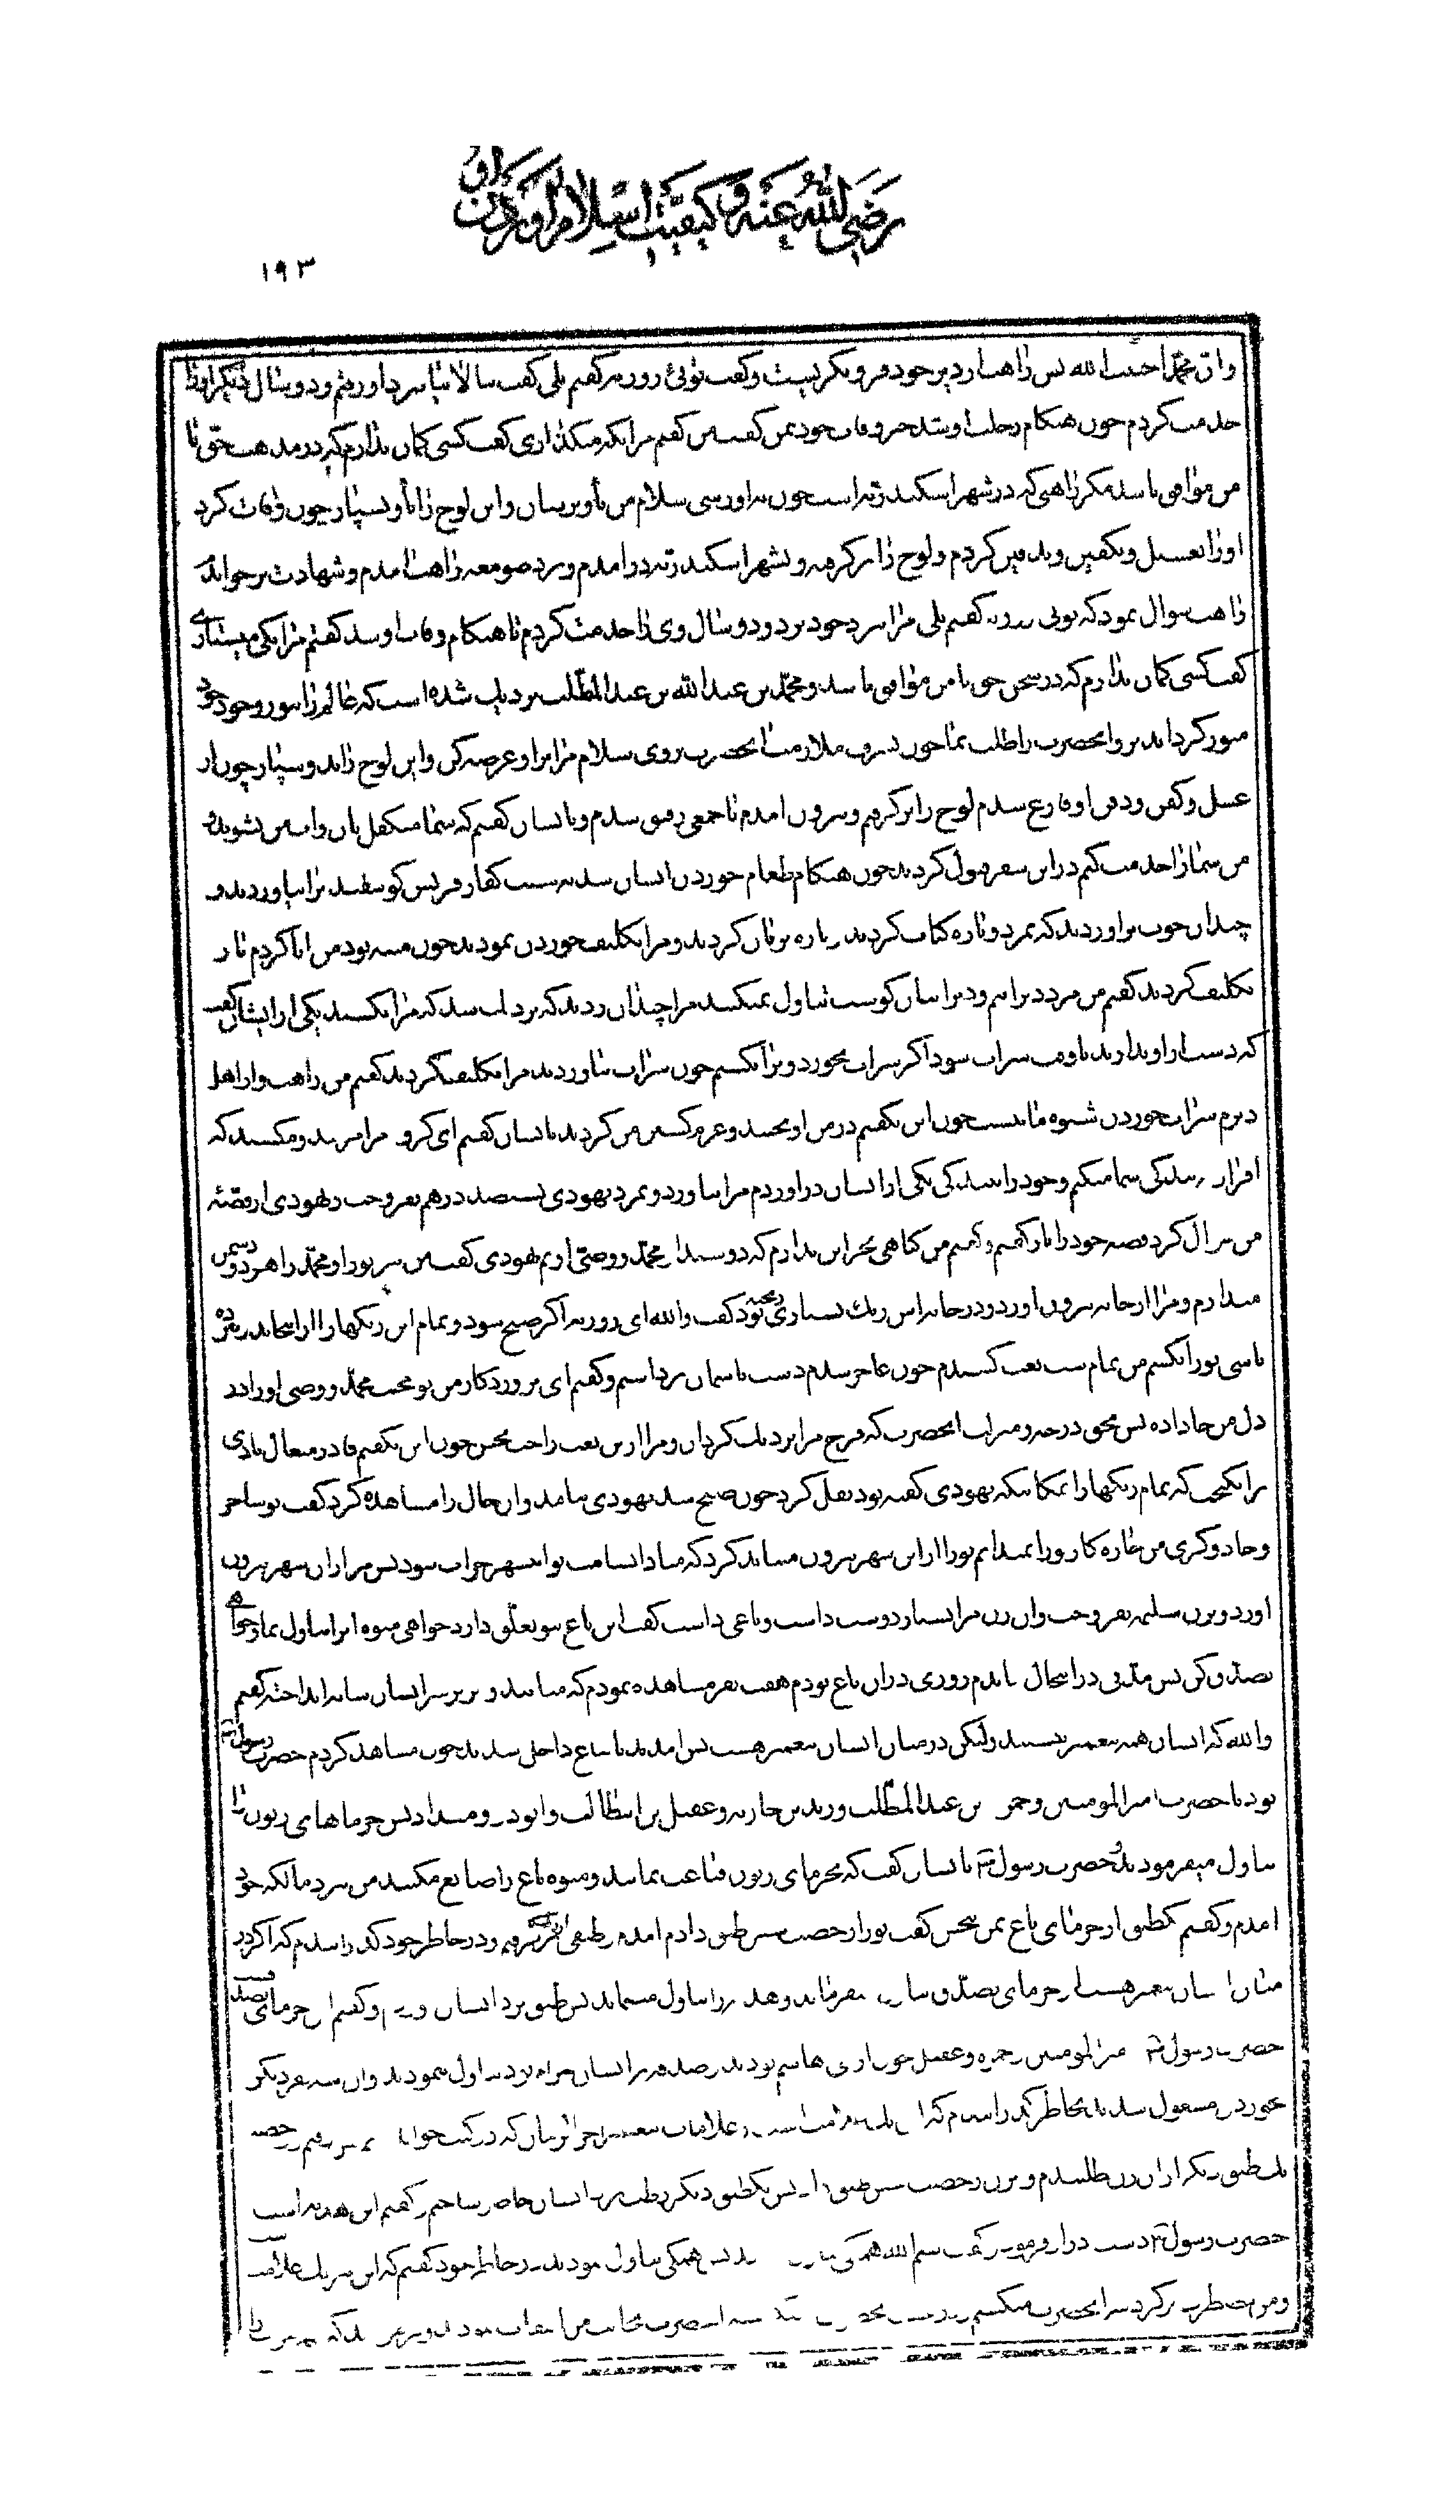 رضی الله عنه و کیفیت اسلام آوردن او
۱۹۳
وان محمدا حبیب الله پس راهب از دیر خود فرو نگریست و گفت توئی روزبه گفتم بلی گفت بالا بیا نزد او رفتم و دو سال دیگر او را
خدمت کردم چون هنگام رحلت او شد خبر وفات خود بمن گفت من گفتم مرا بکه میگذاری گفت کسی گمان ندارم که در مذهب حق با
من موافق باشد مگر راهبی که در شهر اسکندریه است چون باو رسی سلام من باو برسان و این لوح را باو بسپار چون وفات کرد
او را تغسیل و تکفین و تدفین کردم و لوح را برگرفته و بشهر اسکندریه درآمدم و نزد صومعه راهب آمدم و شهادت برخواندم
راهب سوال نمود که توئی روزبه گفتم بلی مرا نزد خود برد و دو سال وی را خدمت کردم تا هنگام وفات او شد گفتم مرا بکی میسپاری
گفت کسی گمان ندارم که در سخن حق با من موافق باشد و محمد بن عبدالله بن عبدالمطلب نزدیک شده است که عالم را بنور وجود خود
منور گرداند برو آنحضرت را طلب نما چون بشرف ملازمت آنحضرت بروی سلام مرا بر او عرضه کن و این لوح را بدو سپار چون از
غسل و کفن و دفن او فارغ شدم لوح را برگرفتم و بیرون آمدم با جمعی رفیق شدم و با ایشان گفتم که شما متکفل نان و آب من بشوید و
من شما را خدمت کنم در این سفر قبول کردند چون هنگام طعام خوردن ایشان شد بسنت کفار قریش گوسفند را بیاوردند و
چندان چوب بر او زدند که بمرد و پاره کباب کردند و پاره بریان کردند و مرا تکلیف خوردن نمودند چون میته بود من ابا کردم باز
تکلیف کردند گفتم من مرد دیرانیم و دیرانیان گوشت تناول نمیکنند مرا چندان زدند که نزدیک شد که مرا بکشند یکی از ایشان گفت
که دست از او بدارید تا وقت شراب شود اگر شراب نخورد ویرا بکشیم چون شراب بیاوردند مرا تکلیف کردند گفتم من راهب و از اهل
دیرم شراب خوردن شیوه ما نیست چون این بگفتم در من آویختند و عزم کشتن من کردند با ایشان گفتم ای گروه مرا مزنید و مکشید که
اقرار ببندگی شما میکنم و خود را ببندگی یکی از ایشان درآوردم مرا بیاورد و بمرد یهودی بسیصد درهم بفروخت و یهودی از قصه
من سوال کرد قصه خود را باز گفتم و گفتم من گناهی بجز این ندارم که دوستدار محمد و وصی اویم یهودی گفت من نیز تو را و محمد را هر دو دشمن
میدارم و مرا از خانه بیرون آورد و در خانه اش ریگ بسیاری ریخته بود گفت والله ای روزبه اگر صبح شود و تمام این ریگها را از اینجا نبرده
باشی تو را بکشم من تمام شب تعب کشیدم چون عاجز شدم دست بآسمان برداشتم و گفتم ای پروردگار من تو محبت محمد و وصی او را در
دل من جا داده پس بحق درجه و منزلت آنحضرت که فرج مرا نزدیک گردان و مرا از این تعب راحت بخش چون این بگفتم قادر متعال بادی
برانگیخت که تمام ریگها را بمکانیکه یهودی گفته بود نقل کرد چون صبح شد یهودی بیامد و آن حال را مشاهده کرد گفت تو ساحر
و جادوگری من چاره کار تو را نمیدانم تو را از این شهر بیرون میباید کرد که مبادا بشامت تو این شهر خراب شود پس مرا از آن شهر بیرون
آورد و بزن سلیمه بفروخت و آن زن مرا بسیار دوست داشت و باغی داشت گفت این باغ بتو تعلق دارد خواهی میوه آنرا تناول نما و خواهی
تصدق کن پس مدتی در این حال بماندم روزی در آن باغ بودم هفت نفر مشاهده نمودم که میآیند و ابر بر سر ایشان سایه انداخته گفتم
والله که ایشان همه پیغمبر نیستند ولیکن در میان ایشان پیغمبر هست پس آمدند تا بباغ داخل شدند چون مشاهده کردم حضرت رسول
بود با حضرت امیرالمومنین و حمزه بن عبدالمطلب و زید بن حارثه و عقیل بن ابیطالب و ابوذر و مقداد پس خرماهای زبون را
تناول میفرمودند و حضرت رسول با ایشان گفت که بخرمای زبون قناعت نمائید و میوه باغ را ضایع مکنید من نزد مالکه خود
آمدم و گفتم یکطبق از خرمای باغ بمن ببخش گفت تو را رخصت شش طبق دادم آمدم و طبقی از رطب برگرفتم و در خاطر خود گذرانیدم که اگر در
میان ایشان پیغمبر هست از خرمای تصدق تناول نمیفرماید و هدیه را تناول مینماید پس طبق نزد ایشان و گفتم این خرمای تصدق است
حضرت رسول و امیرالمومنین و حمزه و عقیل چون از بنی هاشم بودند و صدقه بر ایشان حرام بود تناول ننمودند و آن سه نفر دیگر
بخوردن مشغول شدند بخاطر گذرانیدم که این یک علامت است از علامات پیغمبر آخر الزمان که در کتب خوانده
یک طبق دیگر از آن زن طلبیدم و بزن رخصت شش طبق داد پس یکطبق دیگر رطب نزد ایشان حاضر ساختم و گفتم این هدیه است
حضرت رسول دست دراز فرمود و گفت بسم الله همگی تناول نمودند در خاطر خود گفتم که این نیز یک علامت